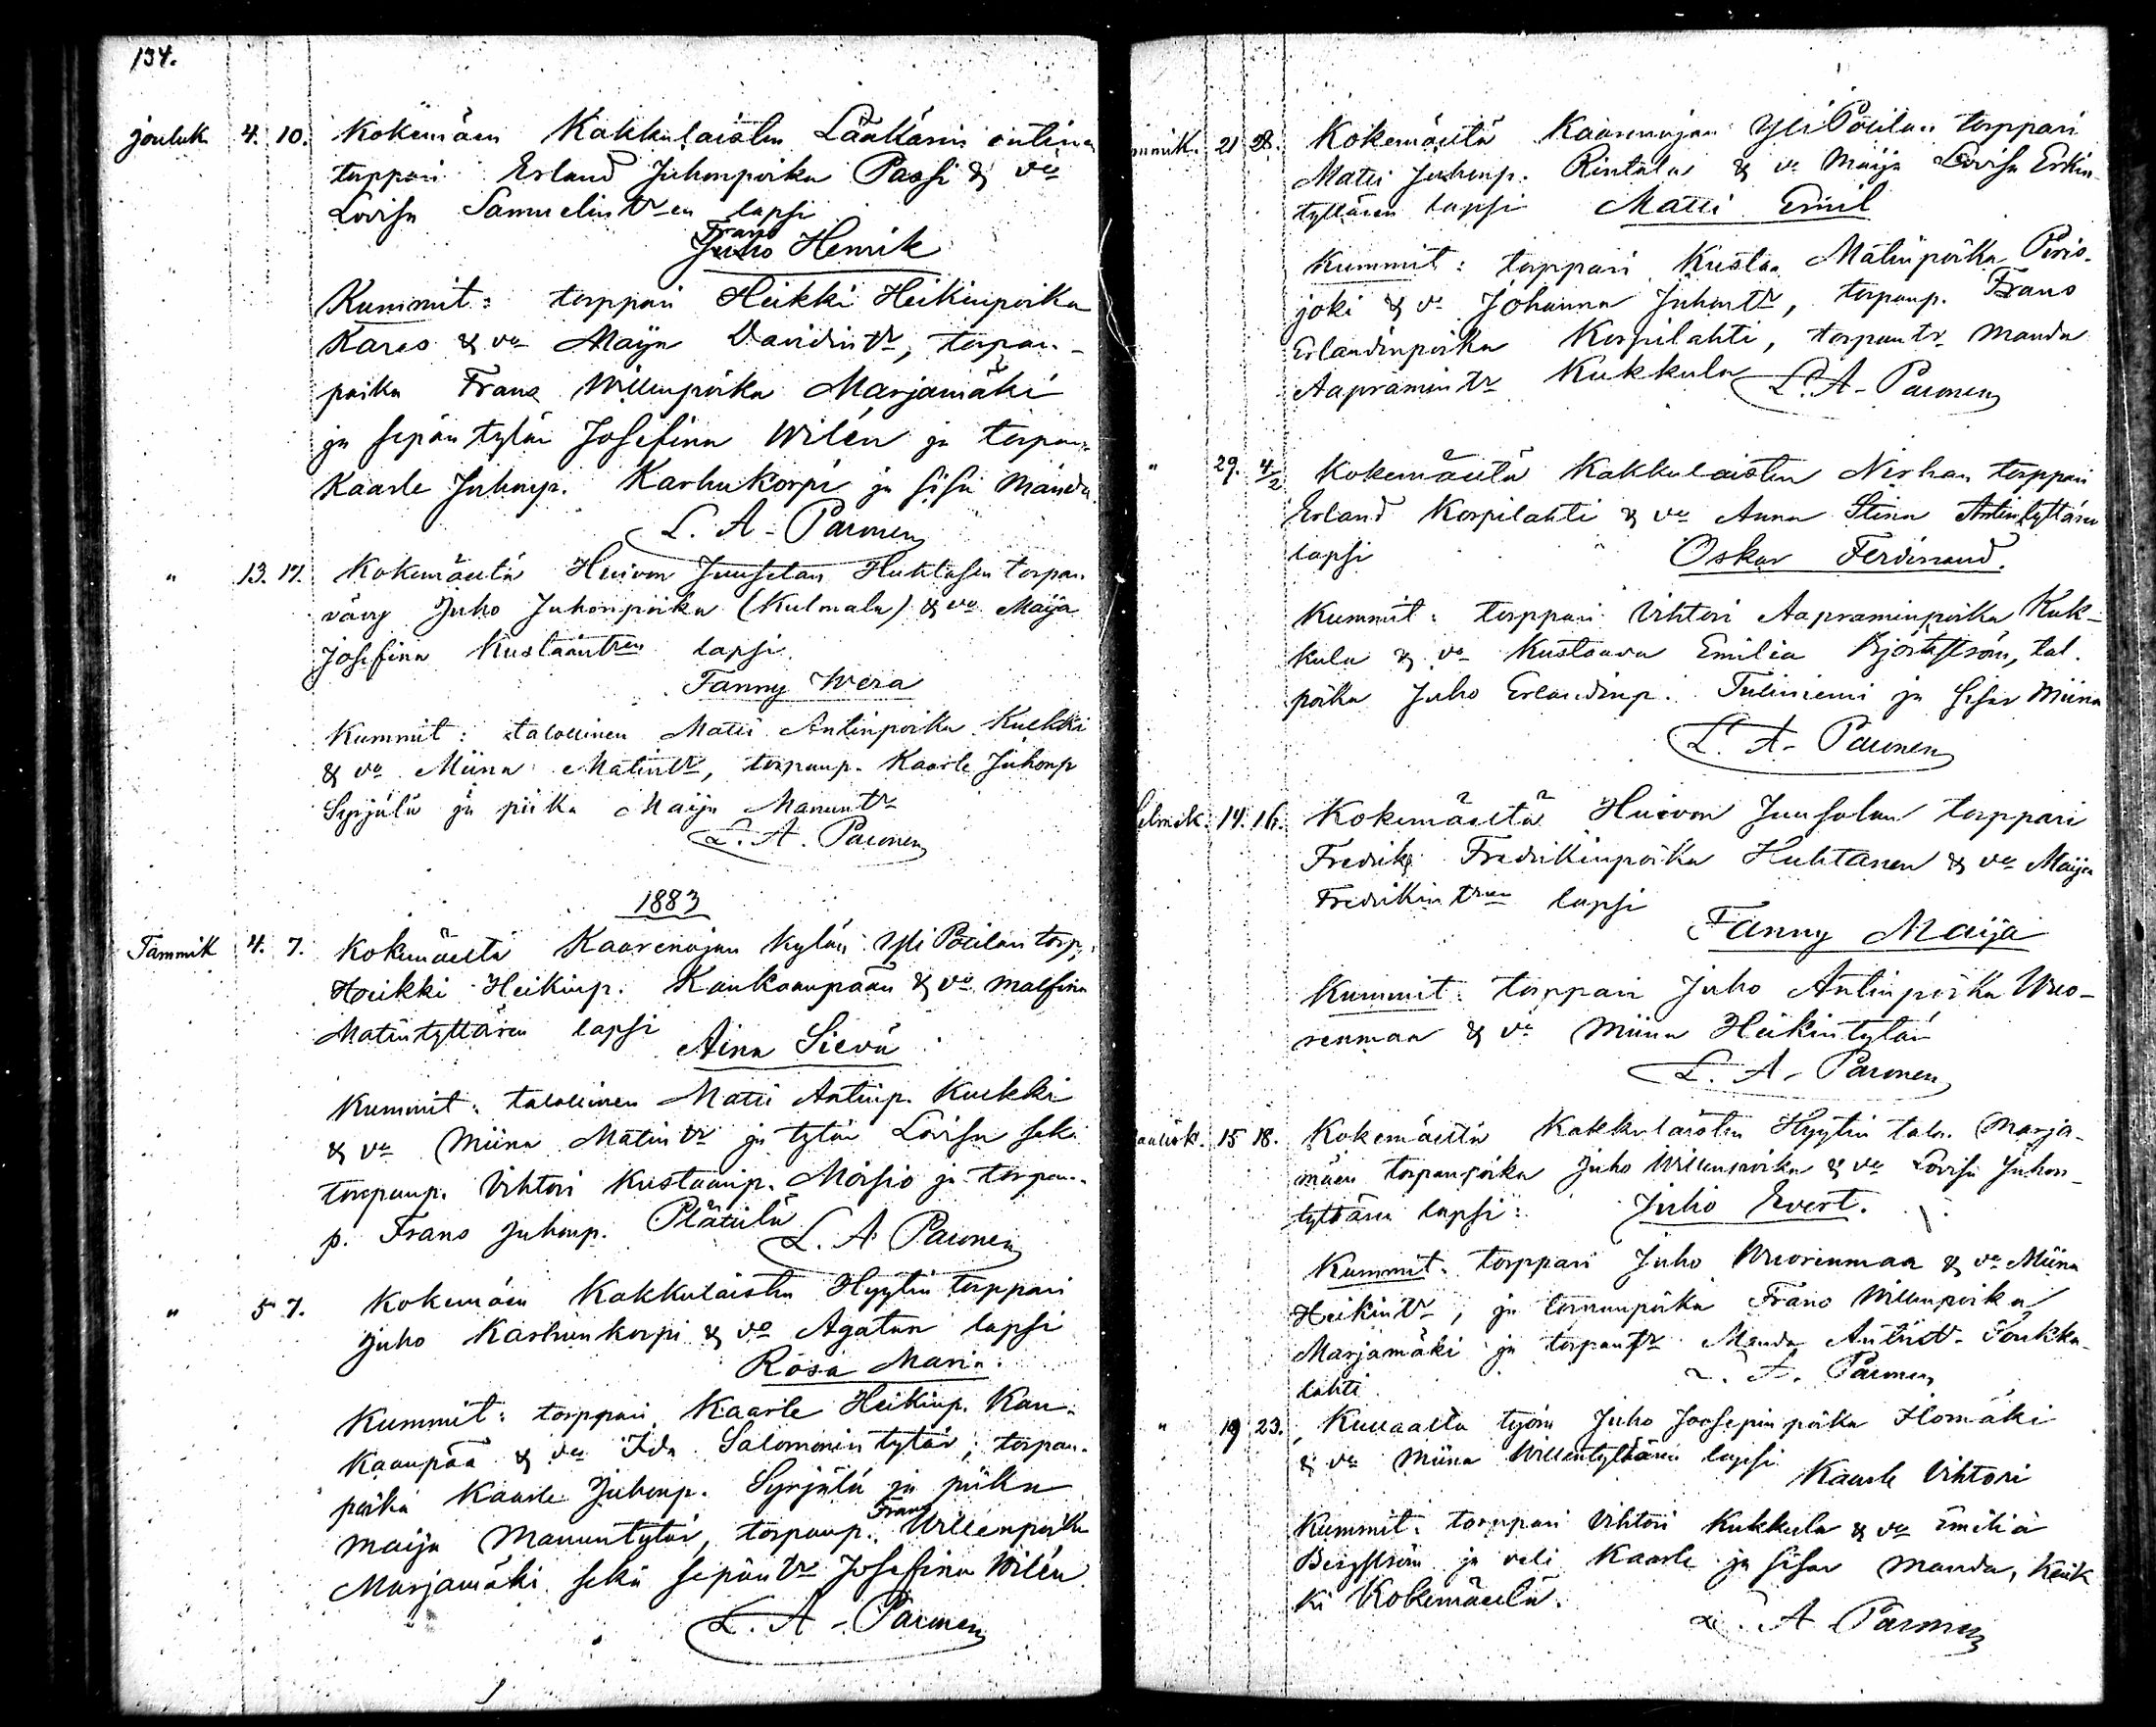 134.
jouluk 4. 10. Kokemäen Kakkulaisten Lääkärin entinen
torppari Erland Juhonpoika Passi & vo
Lovisa Samuelintr-en lapsi
Frans
Juho Henrik
Kummit: torppari Heikki Heikinpoika
Kares & vo Maija Davidintr, torpan-
poika Frans Willenpoika Marjamäki
ja sepän tytär Josefina Wilén ja torpan-
Kaarle Juhonp. Karhukorpi ja sisar Manda.
L. A. Paronen
" 13. 17. Kokemäeltä Huivon Juuselan Huhtasen torpan
vävy Juho Juhonpoika (Kulmala) & vo Maija
Josefina Kustaantren lapsi
Fanny Wera
Kummit: talollinen Matti Antinpoika Kukki
& vo Miina Matintr, torpanp. Kaarle Juhonp
Syrjälä ja piika Maija Manuntr
L. A. Paronen
1883
Tammik 4. 7. Kokemäeltä Kaarenojan kylän Yli Poulan torp.
Heikki Heikinp. Kankaanpään & vo Malfina
Matintyttären lapsi Aina Sievä
Kummit: talollinen Matti Antinp. Kukki
& vo Miina Matintr ja tytär Lovisa sekä
torpanp. Vihtori Kustaanp. Moisio ja torpan-
p. Frans Juhonp. Plätilä
L. A. Paronen
" 5 7. Kokemäen Kakkulaisten Hyytin torppari
Juho Karhunkorpi & vo Agatan lapsi
Rosa Maria.
Kummit: torppari Kaarle Heikinp. Kan-
kaanpää & vo Ida Salomonintytär, torpan-
poika Kaarle Juhonp. Syrjälä ja piika
Frans
Maija Manuntytär, torpanp. Willenpoika
Marjamäki sekä sepäntr Josefina Wilén
L. A. Paronen
mmik. 21 28. Kokemäeltä Kaarenojan Yli Poulan torppari
Matti Juhonp. Rintala & vo Maija Lovisa Erkin-
tyttären lapsi Matti Emil
Kummit: torppari Kustaa Matinpoika Piris-
joki & vo Johanna Juhontr, torpanp. Frans
Erlandinpoika Korpilahti, torpantr Manda
Aapramintr Kukkula L. A. Paronen
" 29. 4/2 Kokemäeltä Kakkulaisten Nirhan torppari
Erland Korpilahti & vo Anna Stina Antintyttären
lapsi Oskar Ferdinand.
Kummit: torppari Vihtori Aapraminpoika Kuk-
kula & vo Kustaava Emilia, tal.
poika Juho Erlandinp. Tuliniemi ja sisar Miina
L. A. Paronen
elmik. 14. 16. Kokemäeltä Huivon Juusolan torppari
Fredrik Fredrikinpoika Huhtanen & vo Maija
Fredrikintren lapsi
Fanny Maija
Kummit: torppari Juho Antinpoika Wuo-
renmaa & vo Miina Heikintytär
L. A. Paronen
aalisk. 15 18. Kokemäeltä Kakkulaisten Hyytin talon Marja-
mäen torpanpoika Juho Willenpoika & vo Lovisa Juhon-
tyttären lapsi: Juho Evert.
Kummit: torppari Juho Wuorenmaa & vo Miina
Heikintr, ja torpanpoika Frans Willenpoika
Marjamäki ja torpantr Manda Antintr Soukka-
lahti L. A. Paronen
" 19 23. Kullaalta työm Juho Joosepinpoika Ilomäki
& vo Miina Willentyttären lapsi Kaarle Vihtori
Kummit: torppari Vihtori Kukkula & vo Emilia
Bergström ja veli Kaarle ja sisar Manda, kaik
ki Kokemäeltä.
L. A. Paronen